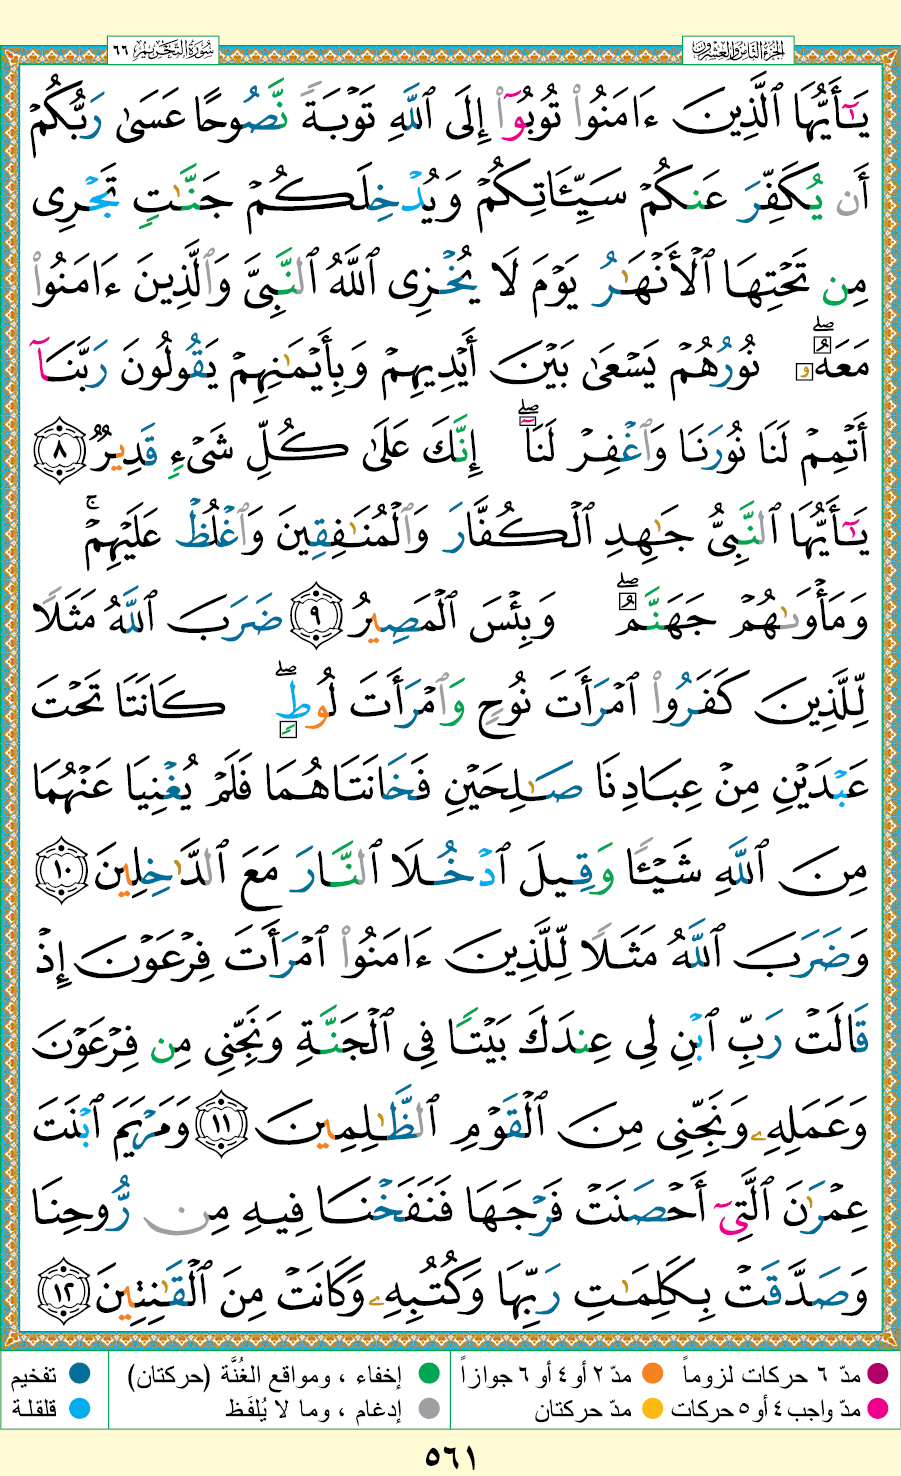 الجزء الثامن والعشرون
سورة التحريم ٦٦
يَٰٓأَيُّهَا ٱلَّذِينَ ءَامَنُوا۟ تُوبُوٓا۟ إِلَى ٱللَّهِ تَوْبَةً نَّصُوحًا عَسَىٰ رَبُّكُمْ
أَن يُكَفِّرَ عَنكُمْ سَيِّـَٔاتِكُمْ وَيُدْخِلَكُمْ جَنَّٰتٍ تَجْرِى
مِن تَحْتِهَا ٱلْأَنْهَٰرُ يَوْمَ لَا يُخْزِى ٱللَّهُ ٱلنَّبِىَّ وَٱلَّذِينَ ءَامَنُوا۟
مَعَهُۥ ۖ نُورُهُمْ يَسْعَىٰ بَيْنَ أَيْدِيهِمْ وَبِأَيْمَٰنِهِمْ يَقُولُونَ رَبَّنَآ
أَتْمِمْ لَنَا نُورَنَا وَٱغْفِرْ لَنَآ ۖ إِنَّكَ عَلَىٰ كُلِّ شَىْءٍ قَدِيرٌ ٨
يَٰٓأَيُّهَا ٱلنَّبِىُّ جَٰهِدِ ٱلْكُفَّارَ وَٱلْمُنَٰفِقِينَ وَٱغْلُظْ عَلَيْهِمْ ۚ
وَمَأْوَىٰهُمْ جَهَنَّمُ ۖ وَبِئْسَ ٱلْمَصِيرُ ٩ ضَرَبَ ٱللَّهُ مَثَلًا
لِّلَّذِينَ كَفَرُوا۟ ٱمْرَأَتَ نُوحٍ وَٱمْرَأَتَ لُوطٍ ۖ كَانَتَا تَحْتَ
عَبْدَيْنِ مِنْ عِبَادِنَا صَٰلِحَيْنِ فَخَانَتَاهُمَا فَلَمْ يُغْنِيَا عَنْهُمَا
مِنَ ٱللَّهِ شَيْـًٔا وَقِيلَ ٱدْخُلَا ٱلنَّارَ مَعَ ٱلدَّٰخِلِينَ ١٠
وَضَرَبَ ٱللَّهُ مَثَلًا لِّلَّذِينَ ءَامَنُوا۟ ٱمْرَأَتَ فِرْعَوْنَ إِذْ
قَالَتْ رَبِّ ٱبْنِ لِى عِندَكَ بَيْتًا فِى ٱلْجَنَّةِ وَنَجِّنِى مِن فِرْعَوْنَ
وَعَمَلِهِۦ وَنَجِّنِى مِنَ ٱلْقَوْمِ ٱلظَّٰلِمِينَ ١١ وَمَرْيَمَ ٱبْنَتَ
عِمْرَٰنَ ٱلَّتِىٓ أَحْصَنَتْ فَرْجَهَا فَنَفَخْنَا فِيهِ مِن رُّوحِنَا
وَصَدَّقَتْ بِكَلِمَٰتِ رَبِّهَا وَكُتُبِهِۦ وَكَانَتْ مِنَ ٱلْقَٰنِتِينَ ١٢
مدّ ٦ حركات لزوماً مدّ ٢ أو ٤ أو ٦ جوازاً إخفاء ، ومواقع الغُنَّة (حركتان) تفخيم
مدّ واجب ٤ أو ٥ حركات مدّ حركتان إدغام ، وما لا يُلفَظ قلقلة
٥٦١